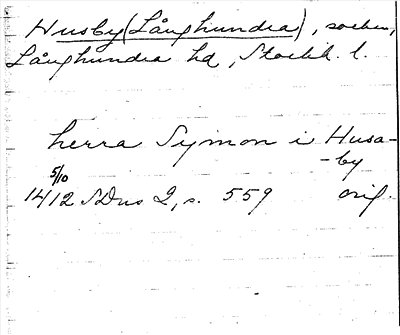 Husby (Långhundra), socken,
Långhundra hd, Stockh. l.
herra Symon i Husa-
-by
5/10
1412 SDns 2, s. 559 orig.